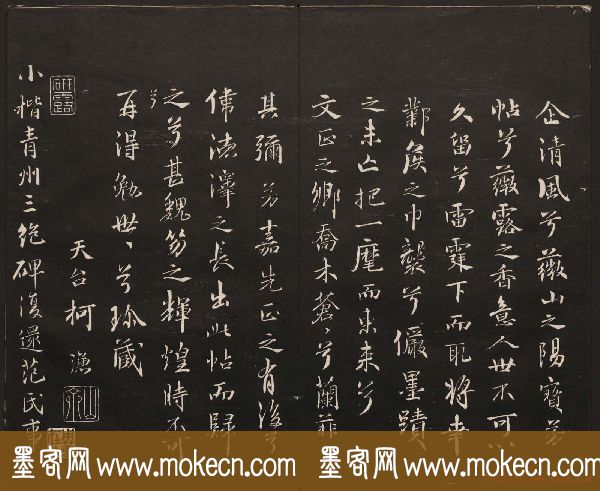 企清风兮薇山之陽寶
帖兮薇露之香意人世不可
久留兮雷霆下而取將幸
鄴侯之巾襲兮儼墨蹟
之未亡把一麾而東来兮
文正之鄉喬木蒼〻兮蘭
其彌芳嘉先正之有後兮
偉德澤之長出此帖而歸
之兮甚魏笏之輝煌時不可
再得勉世〻兮珍藏
天台柯
小楷青州三绝碑復還范氏事
墨客网 www.mokecn.com 墨客网 www.mokecn.com